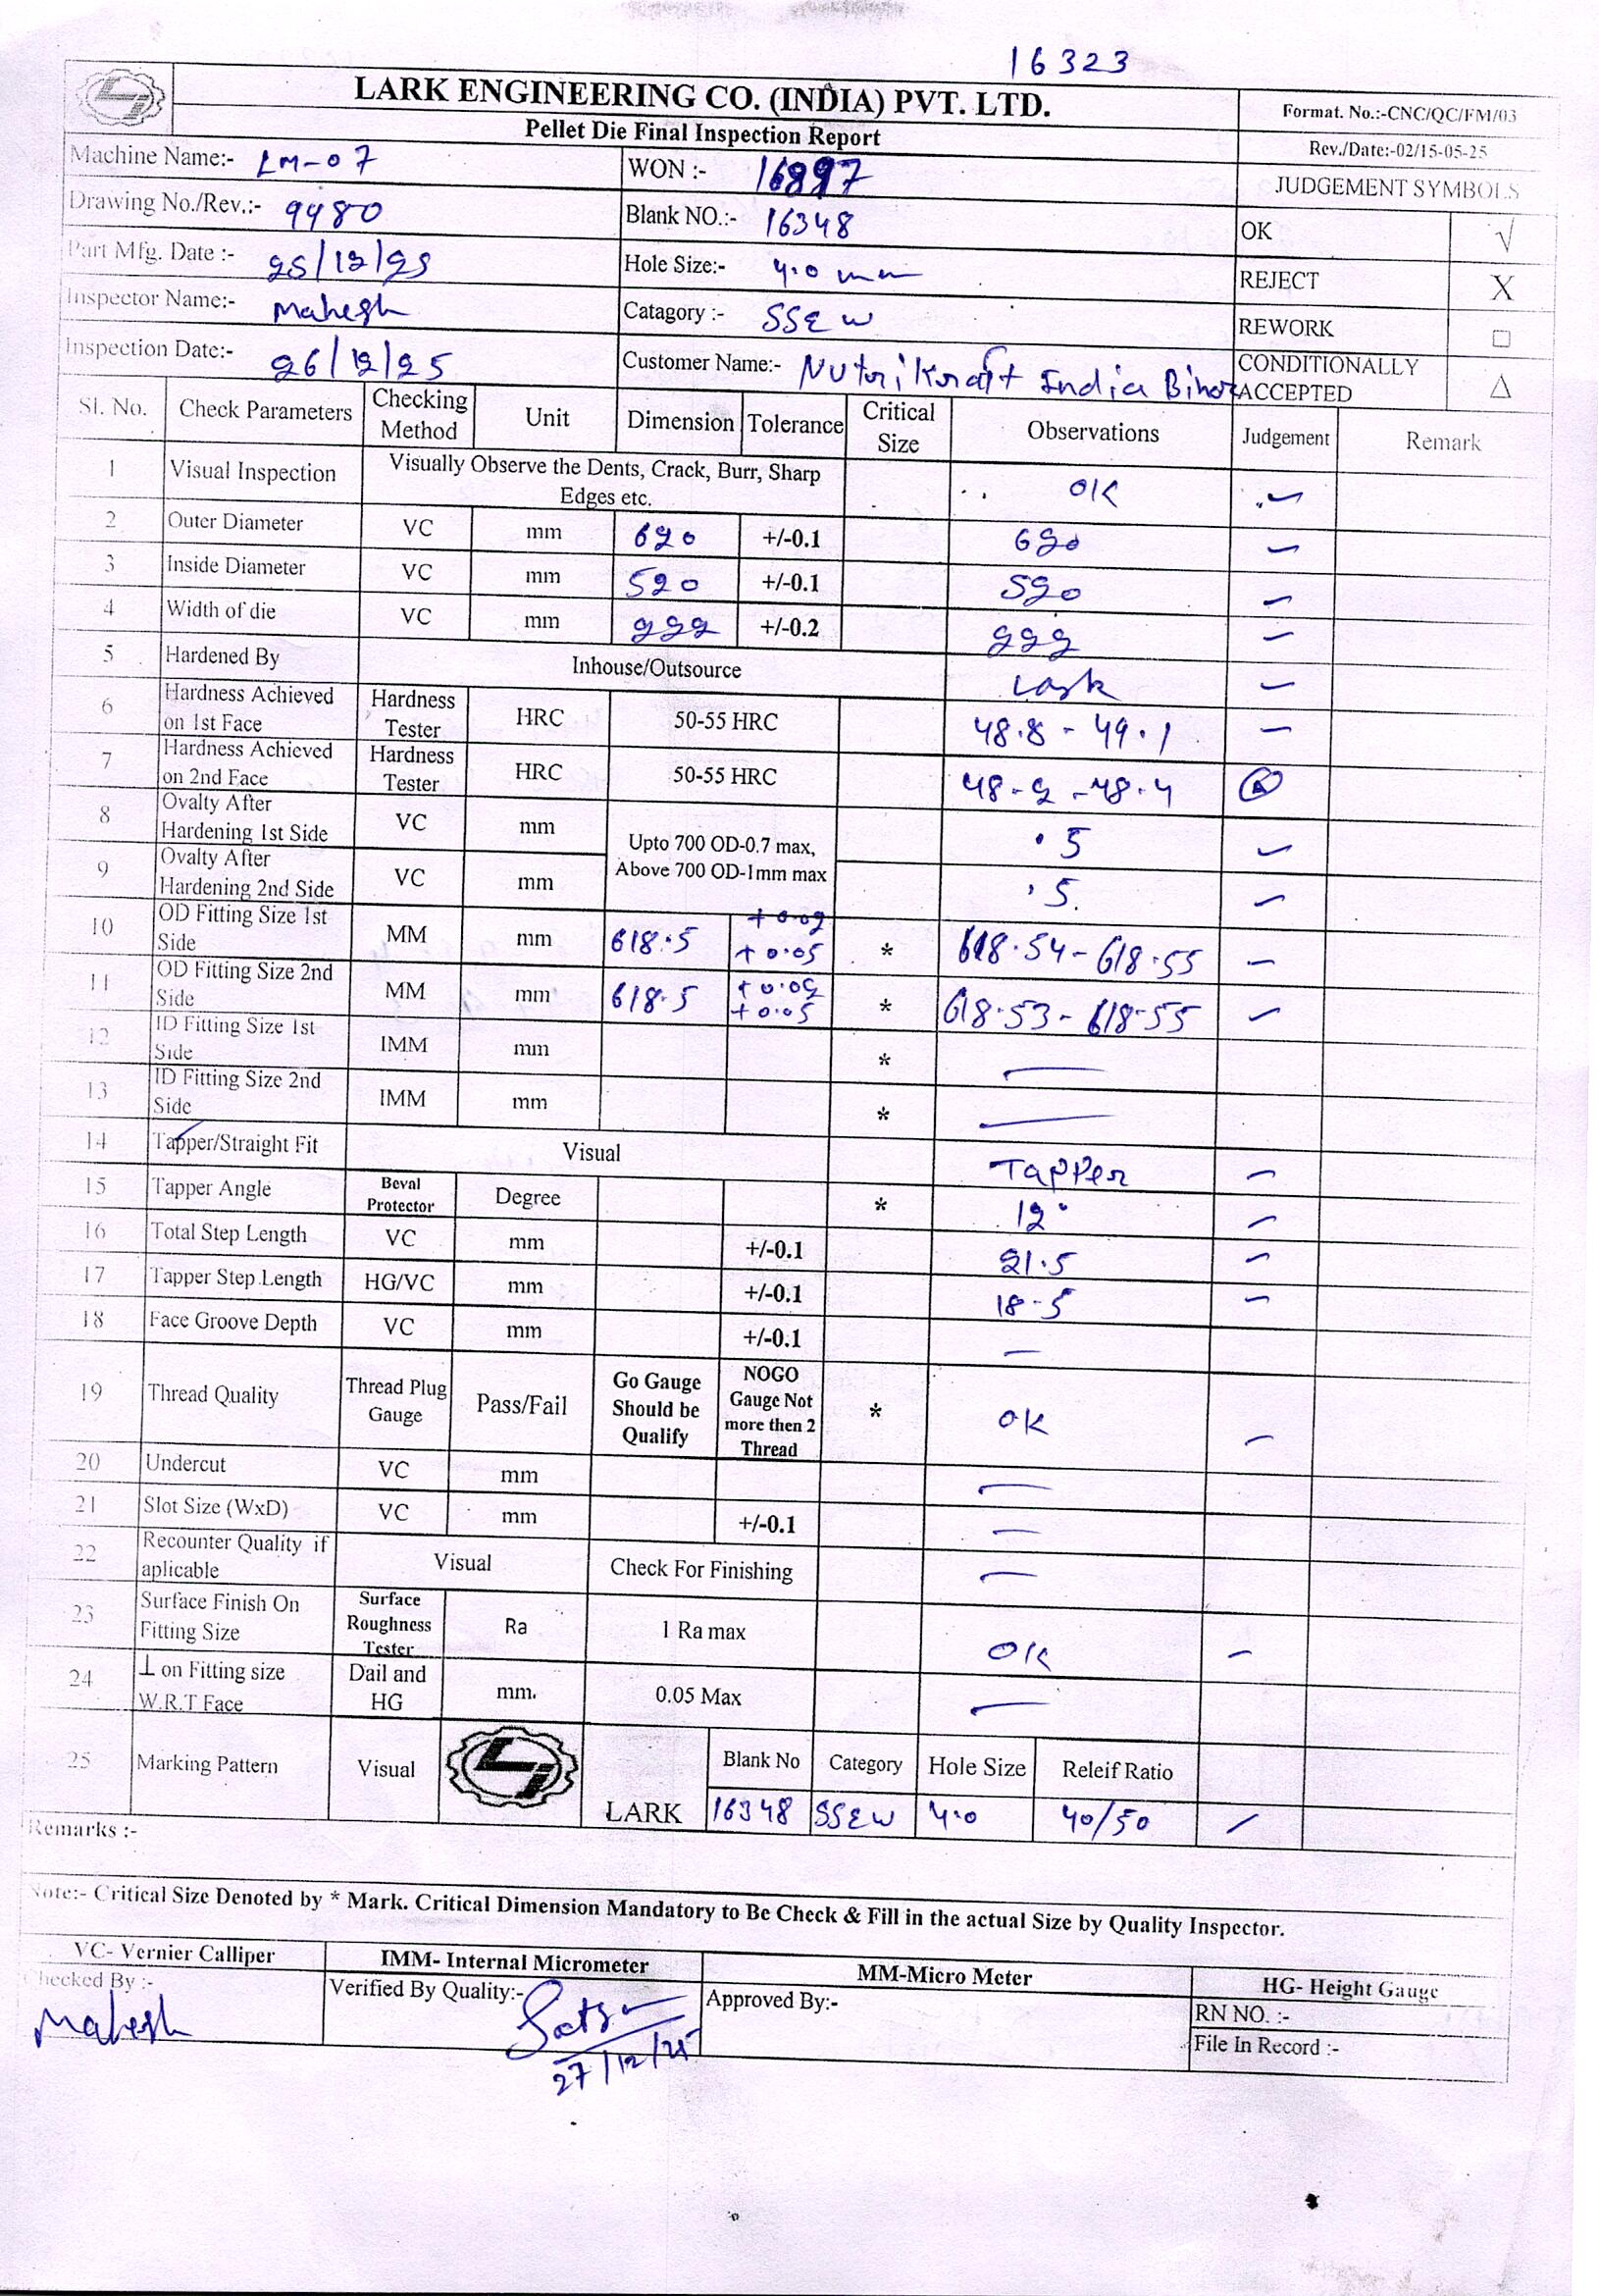 16323
LARK ENGINEERING CO. (INDIA) PVT. LTD.
Format. No.:-CNC/QC/FM/03
Pellet Die Final Inspection Report
Rev./Date:-02/15-05-25
Machine Name:- LM-07 WON :- 16897 JUDGEMENT SYMBOLS
Drawing No./Rev.:- 9480 Blank NO.:- 16348 OK √
Part Mfg. Date :- 25/12/25 Hole Size:- 4.0 mm REJECT X
Inspector Name:- Mahesh Catagory :- SSEW REWORK □
Inspection Date:- 26/12/25 Customer Name:- Nutrikraft India Bihar CONDITIONALLY ACCEPTED △
Sl. No. Check Parameters Checking Method Unit Dimension Tolerance Critical Size Observations Judgement Remark
1 Visual Inspection Visually Observe the Dents, Crack, Burr, Sharp Edges etc. OK
2 Outer Diameter VC mm 620 +/-0.1 620
3 Inside Diameter VC mm 520 +/-0.1 520
4 Width of die VC mm 222 +/-0.2 222
5 Hardened By Inhouse/Outsource Lark
6 Hardness Achieved on 1st Face Hardness Tester HRC 50-55 HRC 48.8 - 49.1
7 Hardness Achieved on 2nd Face Hardness Tester HRC 50-55 HRC 48.2 - 48.4
8 Ovalty After Hardening 1st Side VC mm Upto 700 OD-0.7 max, Above 700 OD-1mm max .5
9 Ovalty After Hardening 2nd Side VC mm .5
10 OD Fitting Size 1st Side MM mm 618.5 +0.02 +0.05 * 618.54 - 618.55
11 OD Fitting Size 2nd Side MM mm 618.5 +0.02 +0.05 * 618.53 - 618.55
12 ID Fitting Size 1st Side IMM mm * —
13 ID Fitting Size 2nd Side IMM mm * —
14 Tapper/Straight Fit Visual Tapper
15 Tapper Angle Beval Protector Degree * 12°
16 Total Step Length VC mm +/-0.1 21.5
17 Tapper Step Length HG/VC mm +/-0.1 18.5
18 Face Groove Depth VC mm +/-0.1 —
19 Thread Quality Thread Plug Gauge Pass/Fail Go Gauge Should be Qualify NOGO Gauge Not more then 2 Thread * OK
20 Undercut VC mm —
21 Slot Size (WxD) VC mm +/-0.1 —
22 Recounter Quality if aplicable Visual Check For Finishing —
23 Surface Finish On Fitting Size Surface Roughness Tester Ra 1 Ra max OK
24 ⊥ on Fitting size W.R.T Face Dail and HG mm. 0.05 Max —
25 Marking Pattern Visual LARK Blank No Category Hole Size Releif Ratio
16348 SSEW 4.0 40/50
Remarks :-
Note:- Critical Size Denoted by * Mark. Critical Dimension Mandatory to Be Check & Fill in the actual Size by Quality Inspector.
VC- Vernier Calliper IMM- Internal Micrometer MM-Micro Meter HG- Height Gauge
Checked By :- Mahesh Verified By Quality:- 27/12/25 Approved By:- RN NO. :-
File In Record :-